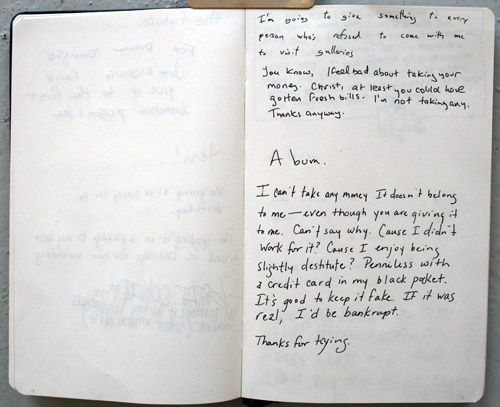 I'm going to give something to every
person who's refused to come with me
to visit galleries
You know, I feel bad about taking your
money. Christ, at least you could have
gotten fresh bills. I'm not taking any.
Thanks anyway.
A bum.
I can't take any money It doesn't belong
to me — even though you are giving it
to me. Can't say why. Cause I didn't
work for it? Cause I enjoy being
slightly destitute? Penniless with
a credit card in my black pocket.
It's good to keep it fake. If it was
real, I'd be bankrupt.
Thanks for trying.